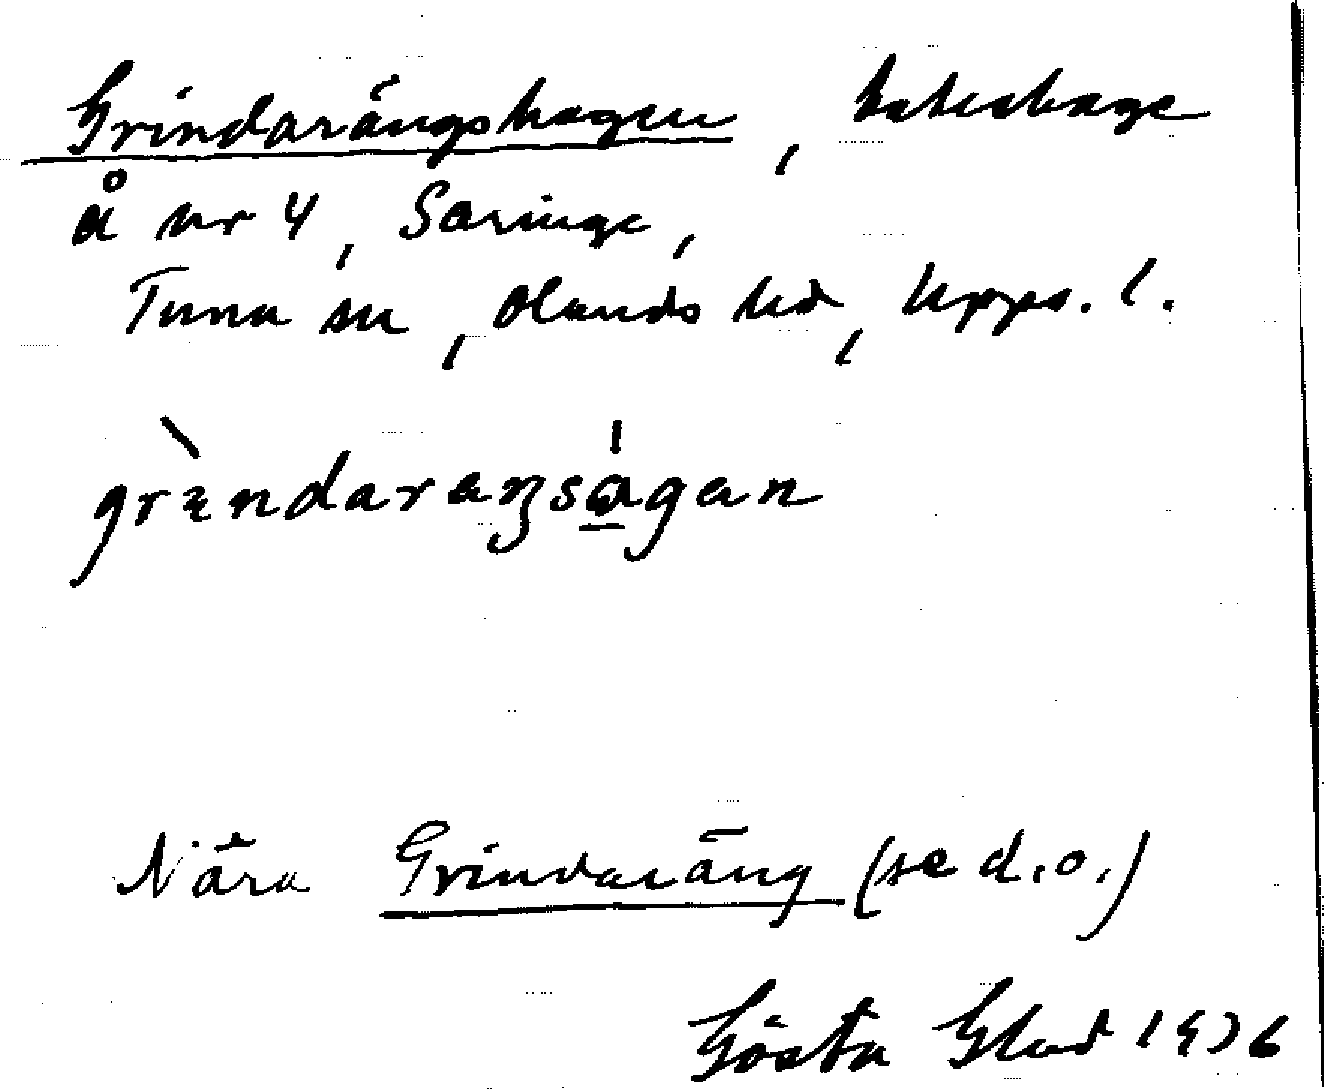 Grindarängshagen, beteshage
å nr 4, Saringe,
Tuna sn, Olands hd, Upps. l.
grindaraŋsagan
Nära Grindaräng (se d.o.)
Gösta Glad 1936